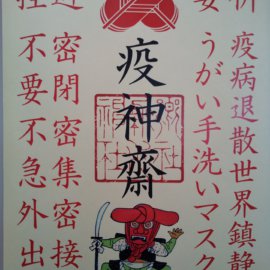 祈 疫病退散世界鎮静
要 うがい手洗いマスク
疫神齋
避 密閉密集密接
控 不要不急外出